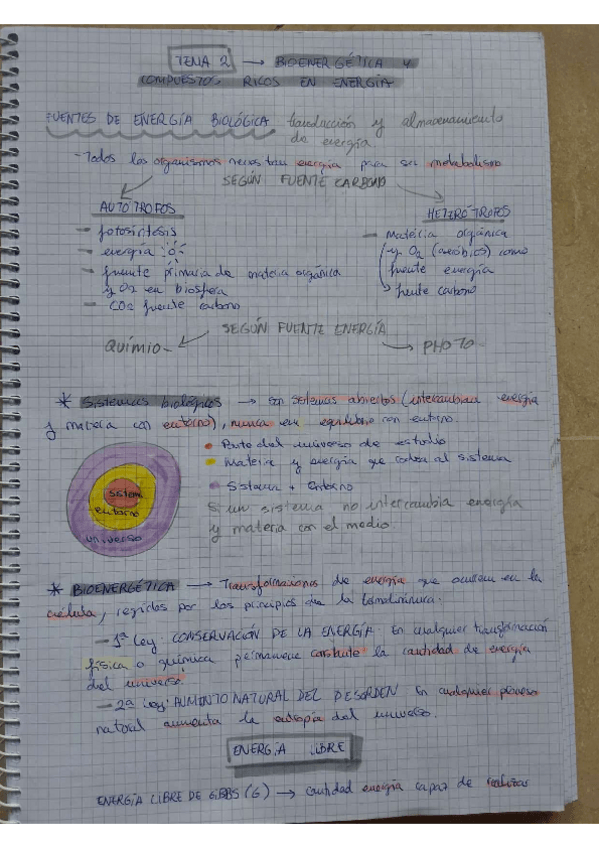 TEMA 2 → BIOENERGÉTICA Y
COMPUESTOS RICOS EN ENERGÍA
FUENTES DE ENERGÍA BIOLÓGICA transducción y almacenamiento
de energía
- Todos los organismos necesitan energía para ser metabolismo
SEGÚN FUENTE CARBONO
AUTÓTROFOS
- fotosíntesis
- energía
- fuente primaria de materia orgánica
y O2 en biosfera
- CO2 fuente carbono
HETERÓTROFOS
- materia orgánica
y O2 (aerobios) como
fuente energía
→ fuente carbono
SEGÚN FUENTE ENERGÍA
QUIMIO- PHOTO-
* Sistemas biológicos → son sistemas abiertos (intercambian energía
y materia con entorno), nunca en equilibrio con entorno.
• Parte del universo de estudio
• Materia y energía que rodea al sistema
• Sistema + Entorno
Sistem
entorno
universo
un sistema no intercambia energía
y materia con el medio.
* BIOENERGÉTICA → Transformaciones de energía que ocurren en la
célula, regidos por los principios de la
- 1ª Ley: CONSERVACIÓN DE LA ENERGÍA. En cualquier transformación
física o química permanece constante la cantidad de energía
del universo.
- 2ª Ley: AUMENTO NATURAL DEL DESORDEN En cualquier proceso
natural aumenta la entropía del universo.
ENERGÍA LIBRE
ENERGÍA LIBRE DE GIBBS (G) → cantidad energía capaz de realizar